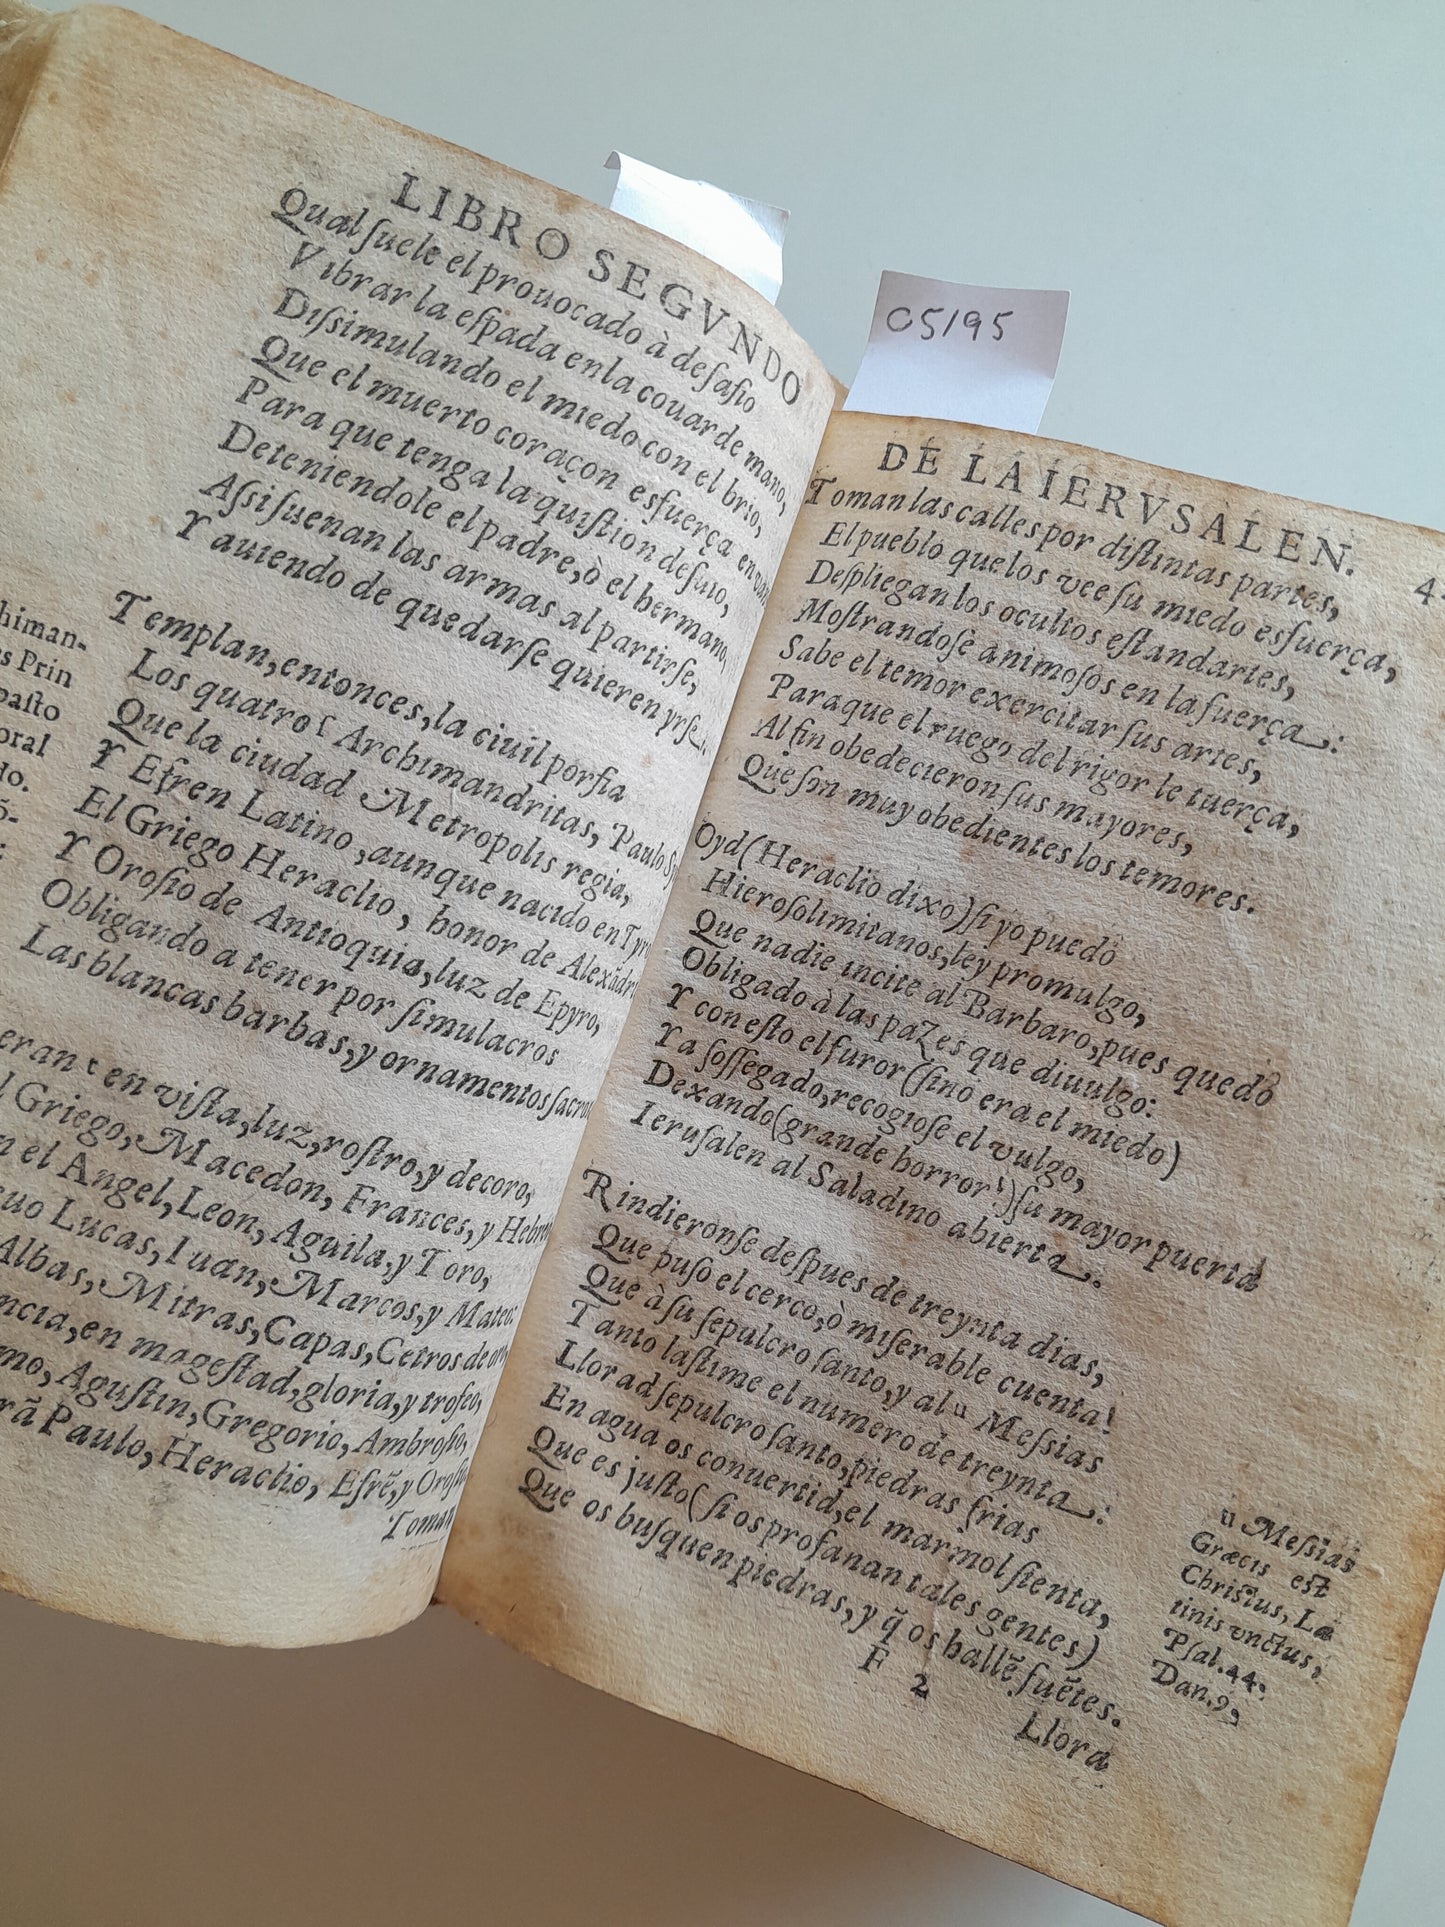 LIBRO SEGVNDO
Qual ſuele el prouocado à deſafio
Vibrar la eſpada en la couarde mano,
Diſsimulando el miedo con el brio,
Que el muerto coraçon esfuerça en
Para que tenga la quiſtion deſuio,
Deteniendole el padre, ò el hermano,
Aſsi ſuenan las armas al partirſe,
Y auiendo de quedarſe quieren yrſe.
himan-
s Prin
paſto
oral
do.
Templan, entonces, la ciuil porfia
Los quatro ſ Archimandritas, Paulo
Que la ciudad Metropolis regia,
Y Efren Latino, aunque nacido en Tyro
El Griego Heraclio, honor de Alexãdri
Y Oroſio de Antioquia, luz de Epyro,
Obligando a tener por ſimulacros
Las blancas barbas, y ornamentos ſacros
eran t en viſta, luz, roſtro, y decoro,
l Griego, Macedon, Frances, y Hebre
n el Angel, Leon, Aguila, y Toro,
uo Lucas, Iuan, Marcos, y Mateo:
Albas, Mitras, Capas, Cetros de oro
ncia, en mageſtad, gloria, y trofeo,
mo, Aguſtin, Gregorio, Ambroſio,
rã Paulo, Heraclio, Efrẽ, y Oroſio
Toman
C5195
DE LA IERVSALEN.
4
Toman las calles por diſtintas partes,
El pueblo que los vee ſu miedo esfuerça,
Deſpliegan los ocultos eſtandartes,
Moſtrandoſe animoſos en la fuerça:
Sabe el temor exercitar ſus artes,
Para que el ruego del rigor le tuerça,
Al fin obedecieron ſus mayores,
Que ſon muy obedientes los temores.
Oyd (Heraclio dixo) ſi yo puedo
Hieroſolimitanos, ley promulgo,
Que nadie incite al Barbaro, pues quedò
Obligado à las paZes que diuulgo:
Y con eſto el furor (ſino era el miedo)
Ya ſoſſegado, recogioſe el vulgo,
Dexando (grande horror!) ſu mayor puerta
Ieruſalen al Saladino abierta.
Rindieronſe deſpues de treynta dias,
Que puſo el cerco, ò miſerable cuenta!
Que à ſu ſepulcro ſanto, y al u Meſsias
Tanto laſtime el numero de treynta:
Llorad ſepulcro ſanto, piedras frias
En agua os conuertid, el marmol ſienta,
Que es juſto (ſi os profanan tales gentes)
Que os buſquen piedras, y q̃ os hallẽ fuẽtes.
u Meſsias
Græcis est
Chriſtus, La
tinis vnctus,
Pſal. 44.
Dan. 9,
F 2
Llora